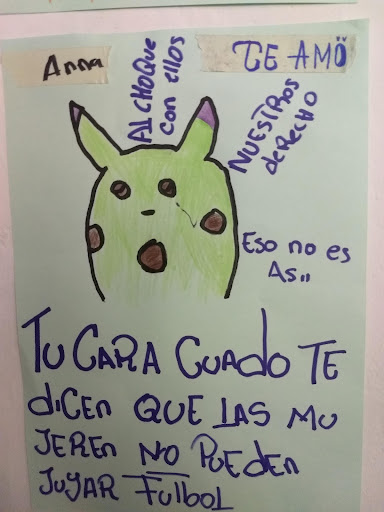 Anna
TE AMÖ
AL CHOQUE
con ellos
NUESTROS
deRECHO
Eso no es
As..
TU CARA CUADO TE
dicen QUE LAS MU
JEREN NO PUEDEN
JUYAR FUlbOL